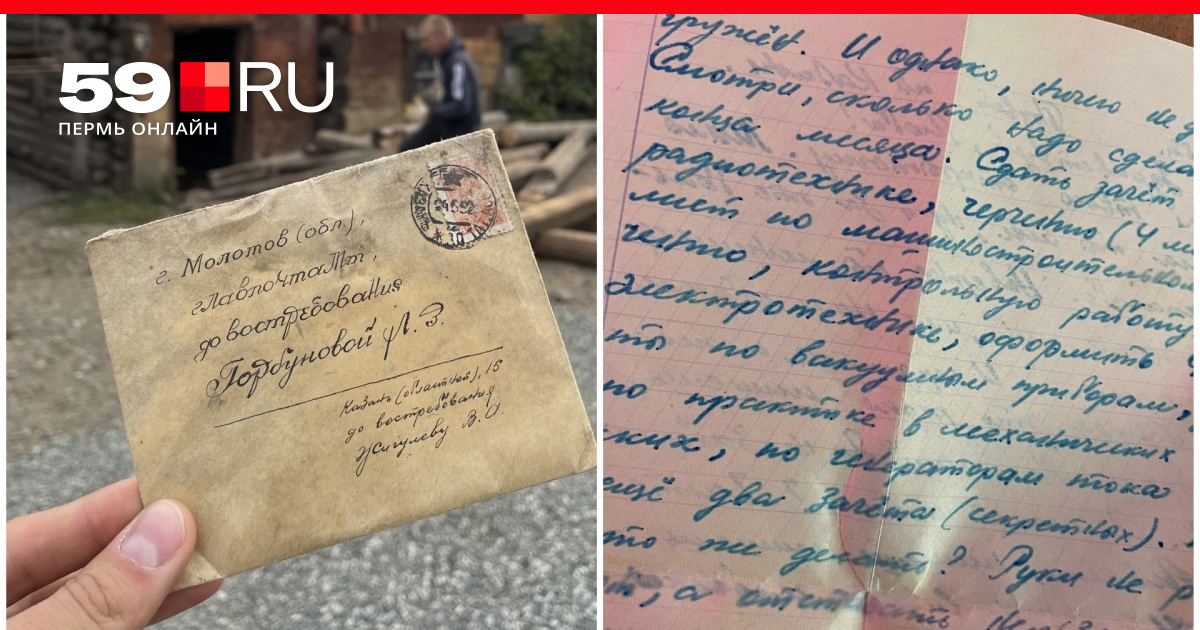 59 RU
ПЕРМЬ ОНЛАЙН
г. Молотов (обл),
главпочтамт,
до востребования
Горбуновой Л. З.
Казань (областной), 15
до востребования
Жигулеву В. И.
КАЗАНЬ
24 5 52
гружён. И однако, ничего не
Смотри, сколько надо сдела
конца месяца. Сдать зачёт
радиотехнике, черчению (4
лист по машиностроительном
чению, контрольную работу
электротехнике, оформить
ты по вакуумным приборам,
по практике в механических
ких, по генераторам тока
ещё два зачёта (секретных).
то же делать? Руки не